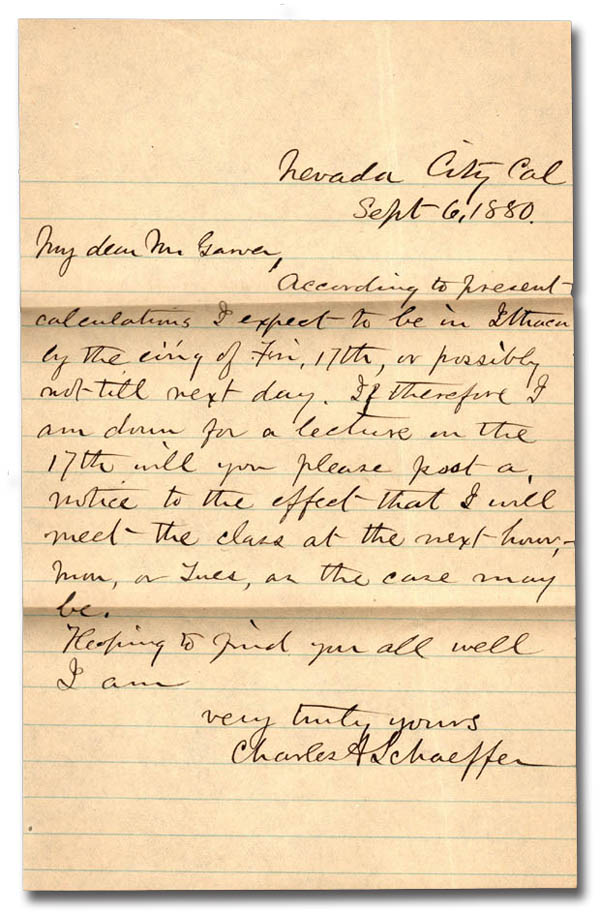 Nevada City Cal
Sept 6, 1880.
My dear Mr Garver,
According to present
calculations I expect to be in Ithaca
by the ev'g of Fri, 17th, or possibly
not till next day. If therefore I
am down for a lecture on the
17th will you please post a
notice to the effect that I will
meet the class at the next hour,–
Mon, or Tues, as the case may
be.
Hoping to find you all well
I am
very truly yours
Charles A Schaeffer